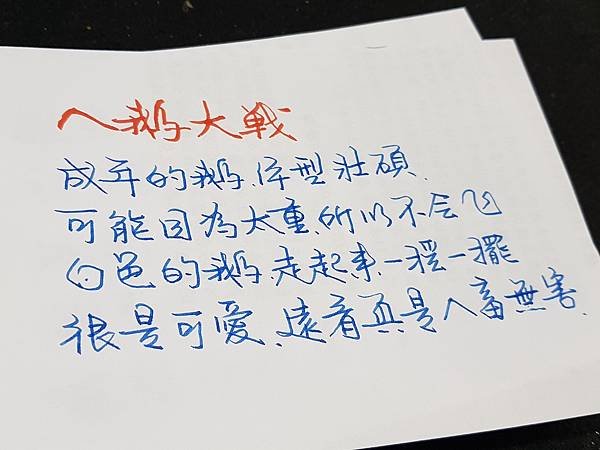 人鵝大戰
成年的鵝.体型壯碩.
可能因為太重.所以不会飞
白色的鵝.走起來.一摇一擺
很是可愛.遠看真是人畜無害.